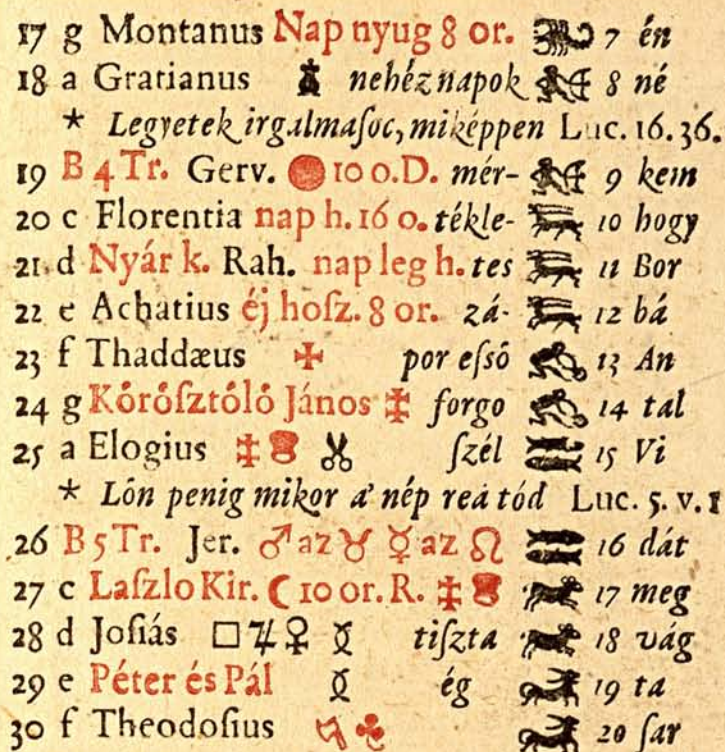 17 g Montanus Nap nyug 8 or. 7 én
18 a Gratianus nehéz napok 8 né
* Legyetek irgalmaſoc, miképpen Luc. 16. 36.
19 B 4 Tr. Gerv. 10 o. D. mér- 9 kem
20 c Florentia nap h. 16 o. tékle- 10 hogy
21 d Nyár k. Rah. nap leg h. tes 11 Bor
22 e Achatius éj hoſz. 8 or. zá- 12 bá
23 f Thaddæus ✠ por eſsö 13 An
24 g Köröſztölö János forgo 14 tal
25 a Elogius ſzél 15 Vi
* Lön penig mikor a' nép reá tód Luc. 5. v. 1
26 B 5 Tr. Jer. ♂ az ♉ ☿ az ♌ 16 dát
27 c Laſzlo Kir. ☾ 10 or. R. 17 meg
28 d Joſiás □ ♃ ♀ tiſzta 18 vág
29 e Péter és Pál ég 19 ta
30 f Theodoſius 20 ſar